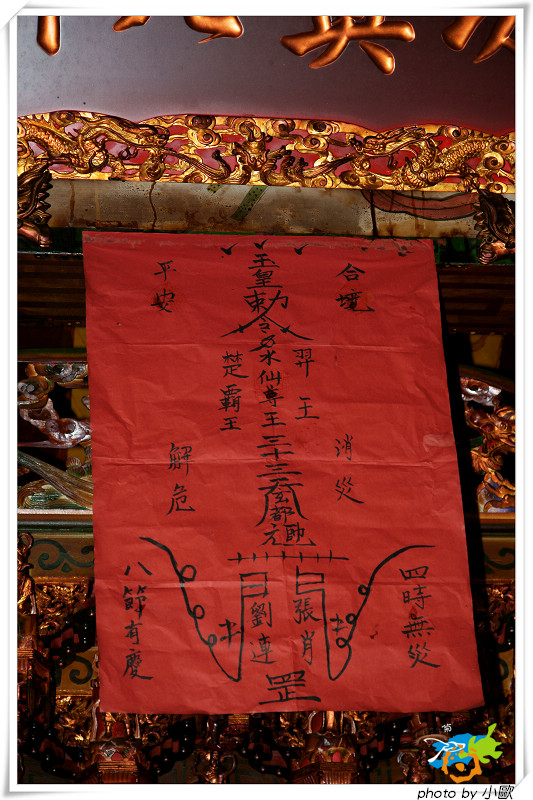 合境
平安
玉皇
勅令
水仙尊王
羿王
楚霸王
三十三
消災
解危
四時無災
八節有慶
張肖
劉連
罡
photo by 小歐